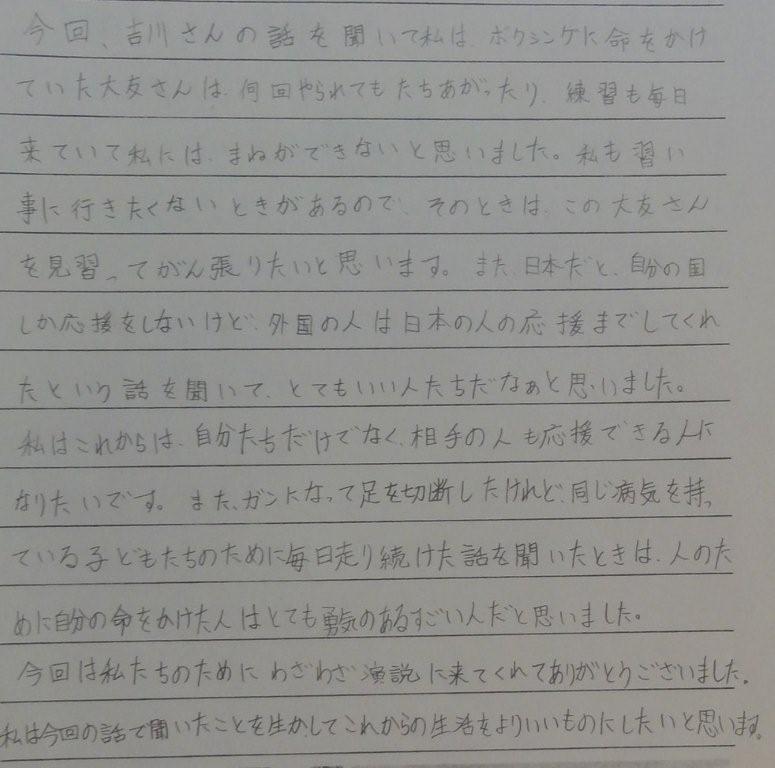 今回、吉川さんの話を聞いて私は、ボクシングに命をかけ
ていた大友さんは、何回やられてもたちあがったり、練習も毎日
来ていて私には、まねができないと思いました。私も習い
事に行きたくないときがあるので、そのときは、この大友さん
を見習ってがん張りたいと思います。また、日本だと、自分の国
しか応援をしないけど、外国の人は日本の人の応援までしてくれ
たという話を聞いて、とてもいい人たちだなぁと思いました。
私はこれからは、自分たちだけでなく、相手の人も応援できる人に
なりたいです。また、ガンになって足を切断したけれど、同じ病気を持っ
ている子どもたちのために毎日走り続けた話を聞いたときは、人のた
めに自分の命をかけた人はとても勇気のあるすごい人だと思いました。
今回は私たちのためにわざわざ演説に来てくれてありがとうございました。
私は今回の話で聞いたことを生かしてこれからの生活をよりいいものにしたいと思います。